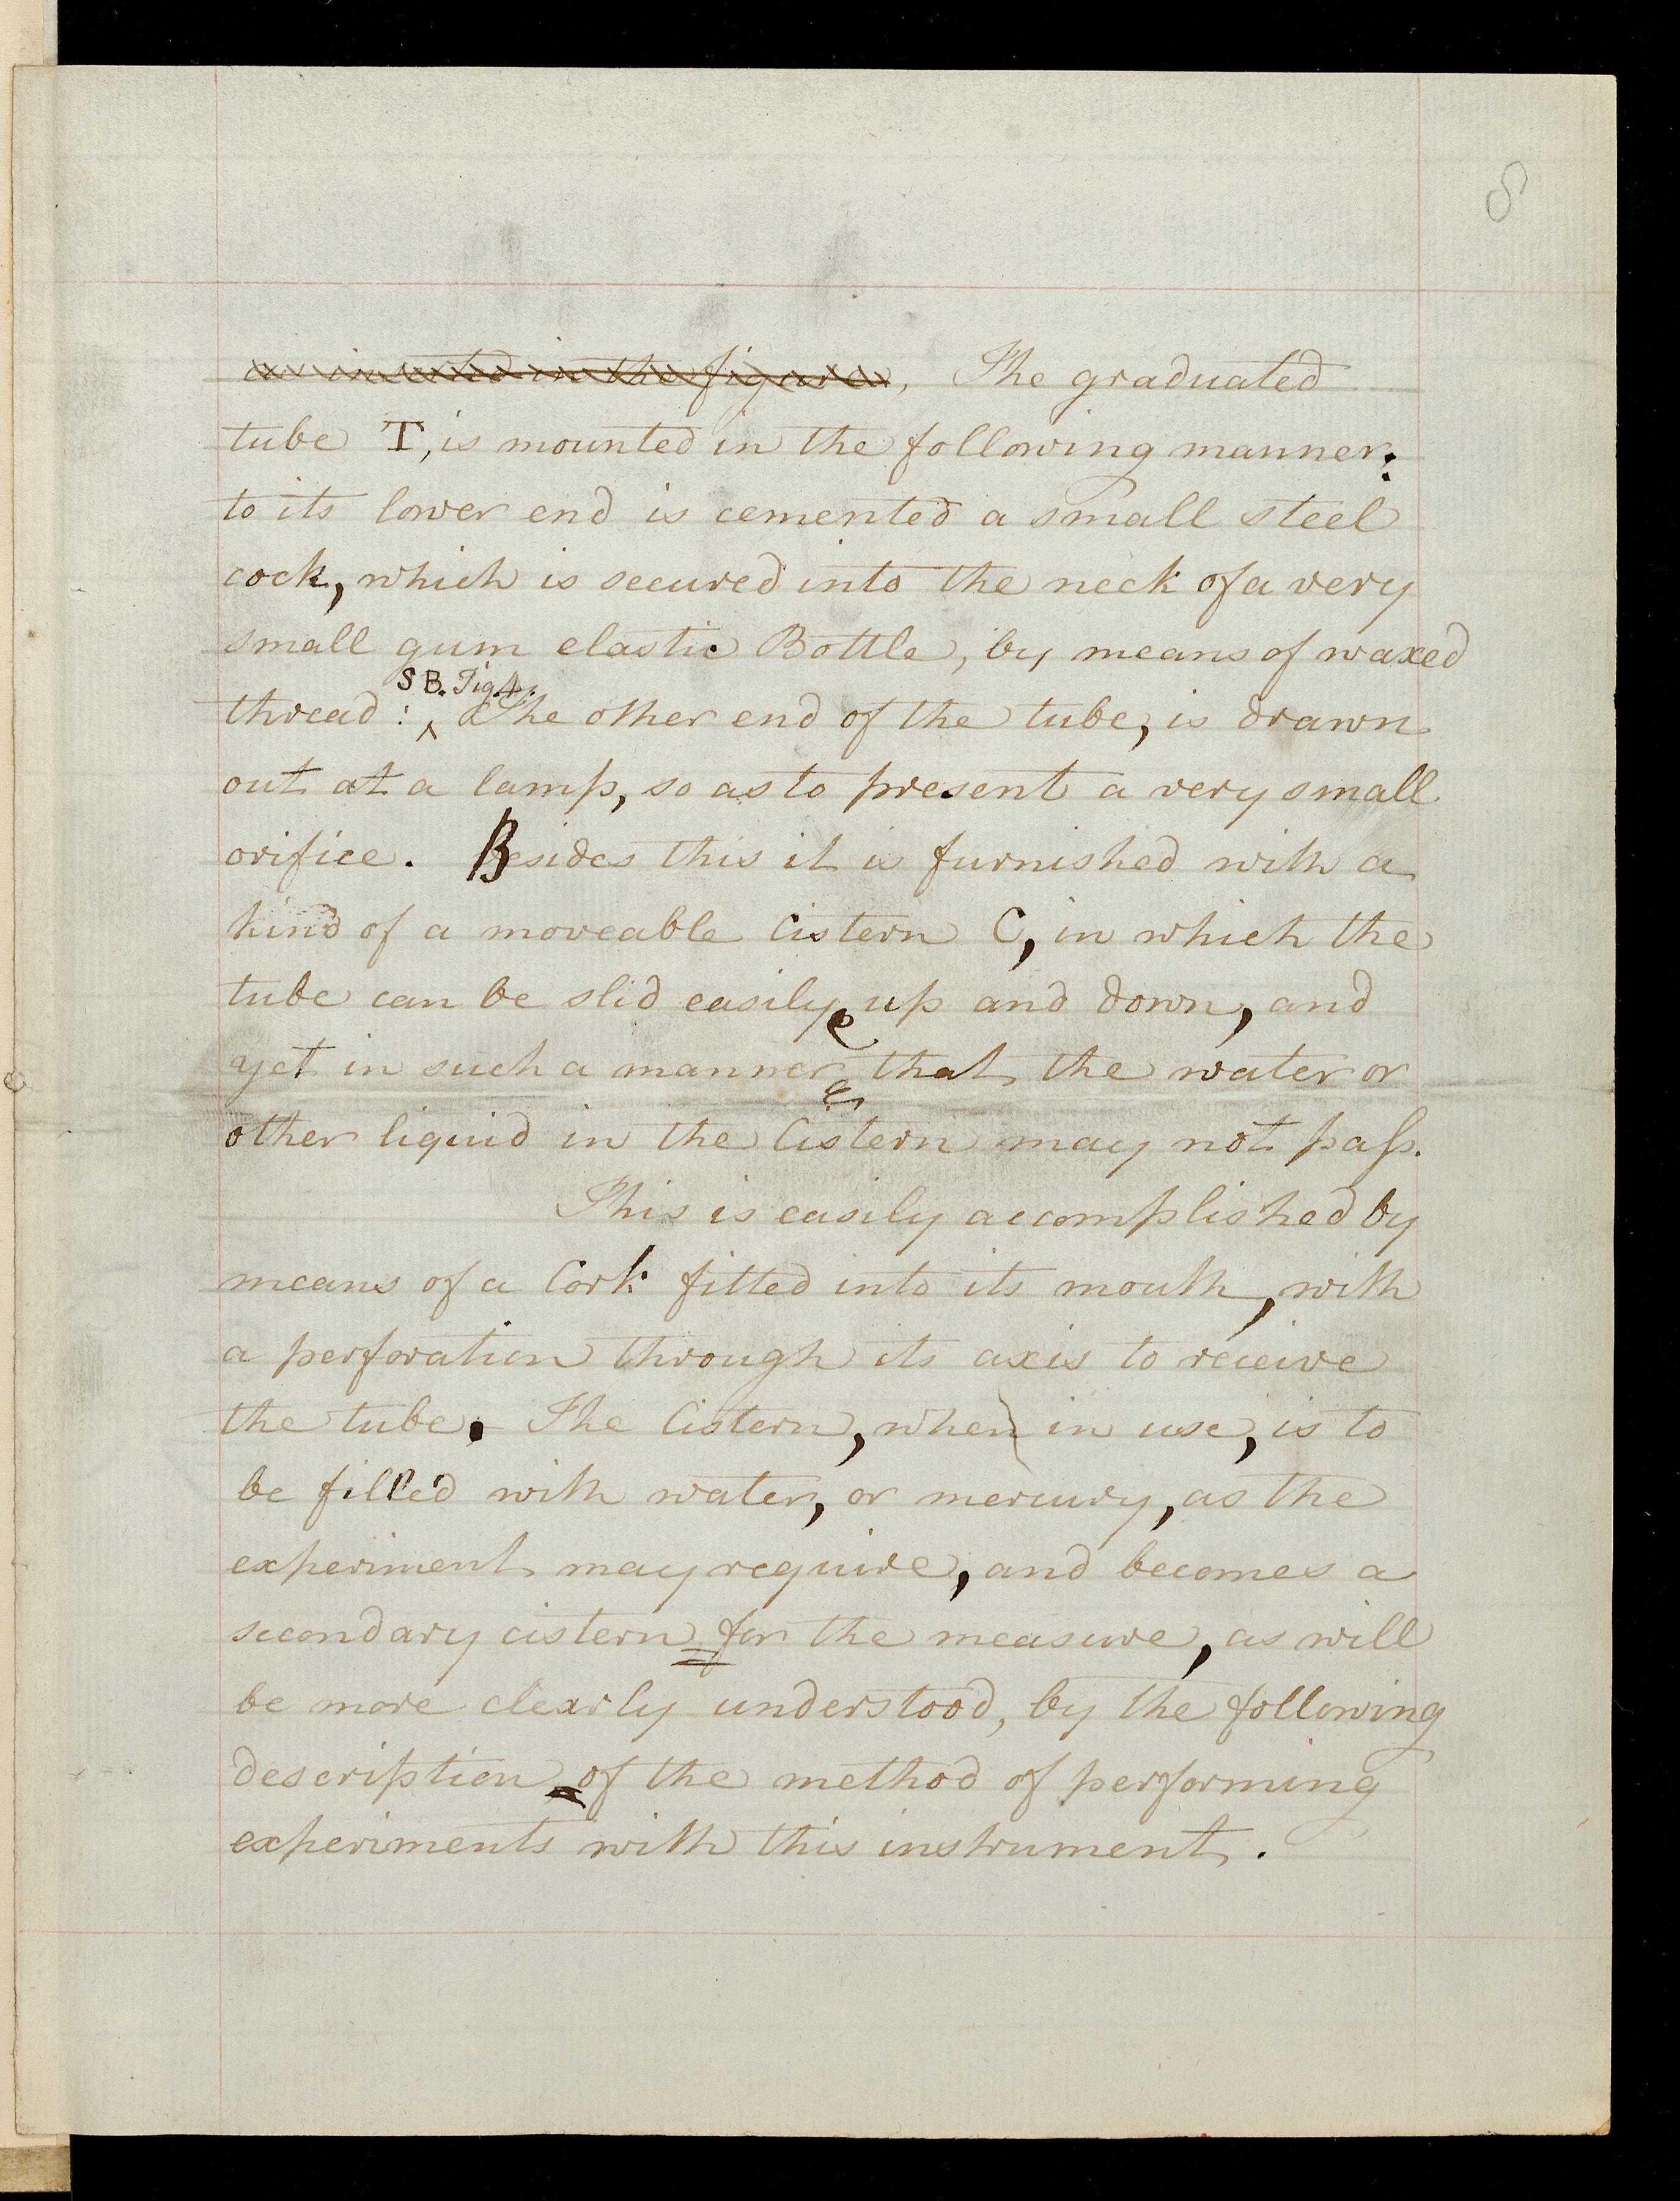 8
as inverted in the figure, The graduated
tube T, is mounted in the following manner:
to its lower end is cemented a small steel
cock, which is secured into the neck of a very
small gum elastic Bottle, by means of waxed
S B. Fig. 4.
thread: ^ The other end of the tube, is drawn
out at a lamp, so as to present a very small
orifice. Besides this it is furnished with a
kind of a moveable Cistern C, in which the
tube can be slid easily up and down, and
yet in such a manner that the water or
other liquid in the Cistern may not paſs.
This is easily accomplished by
means of a Cork fitted into its mouth, with
a perforation through its axis to receive
the tube. The Cistern, when in use, is to
be filled with water, or mercury, as the
experiment may require, and becomes a
secondary cistern for the measure, as will
be more clearly understood, by the following
description of the method of performing
experiments with this instrument.